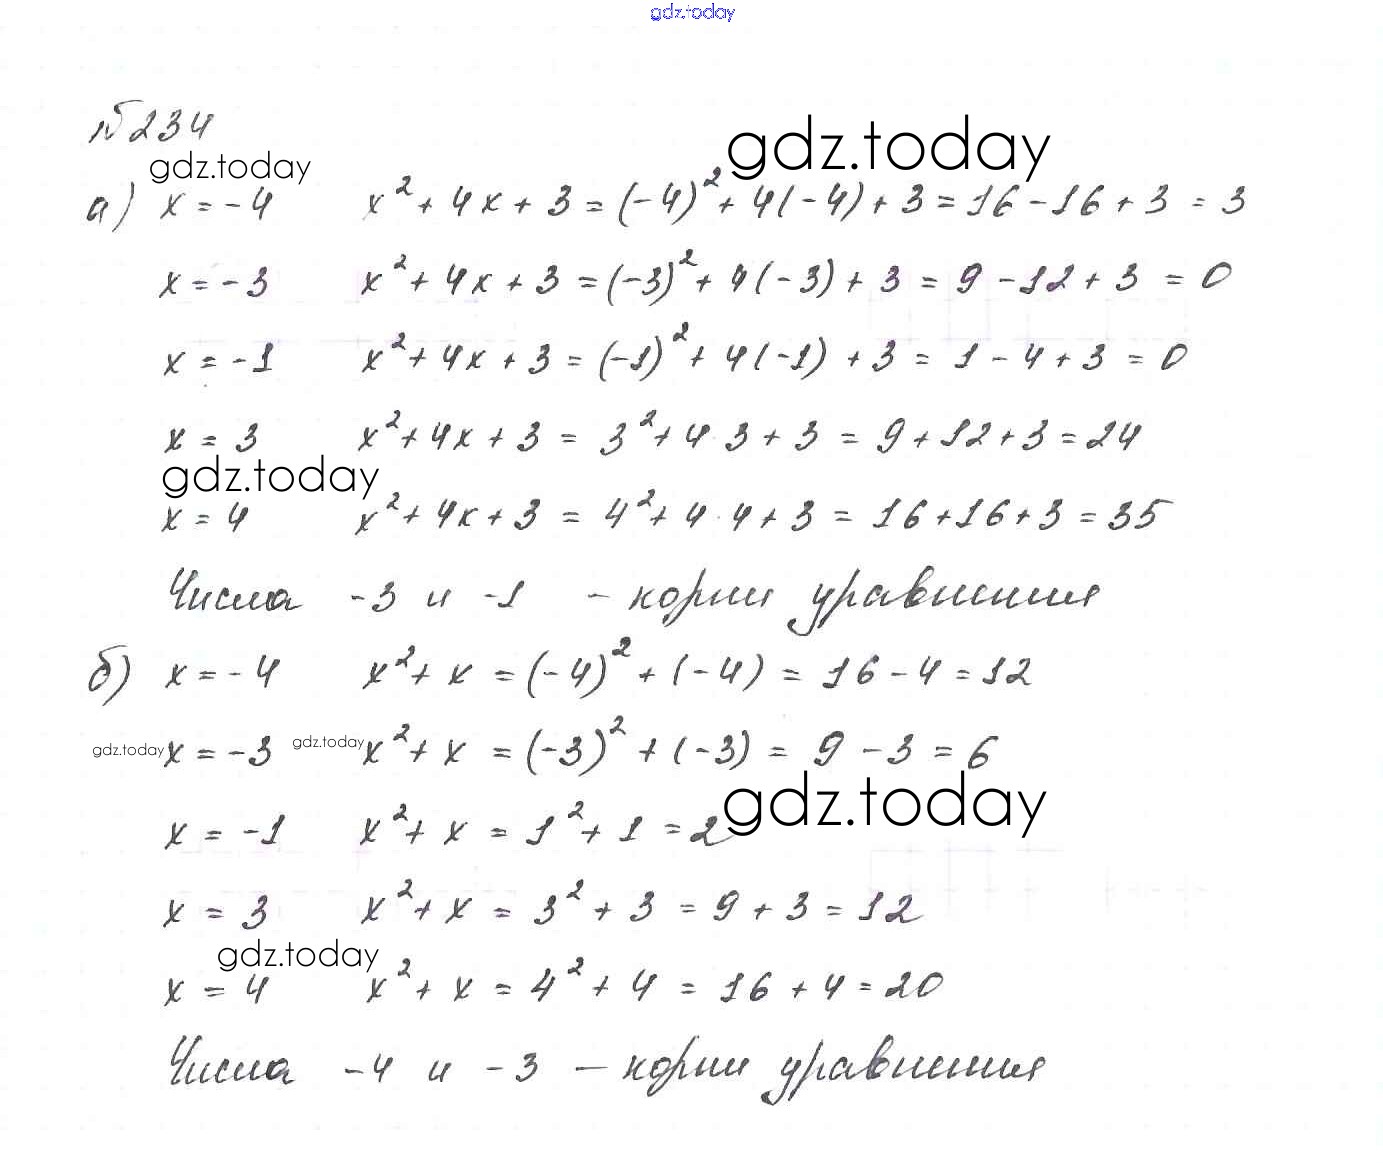 gdz.today
№234
gdz.today gdz.today
а) x = -4 x² + 4x + 3 = (-4)² + 4(-4) + 3 = 16 - 16 + 3 = 3
x = -3 x² + 4x + 3 = (-3)² + 4(-3) + 3 = 9 - 12 + 3 = 0
x = -1 x² + 4x + 3 = (-1)² + 4(-1) + 3 = 1 - 4 + 3 = 0
x = 3 x² + 4x + 3 = 3² + 4·3 + 3 = 9 + 12 + 3 = 24
gdz.today
x = 4 x² + 4x + 3 = 4² + 4·4 + 3 = 16 + 16 + 3 = 35
Числа -3 и -1 - корни уравнения
б) x = -4 x² + x = (-4)² + (-4) = 16 - 4 = 12
gdz.today x = -3 gdz.today x² + x = (-3)² + (-3) = 9 - 3 = 6
gdz.today
x = -1 x² + x = 1² + 1 = 2
x = 3 x² + x = 3² + 3 = 9 + 3 = 12
gdz.today
x = 4 x² + x = 4² + 4 = 16 + 4 = 20
Числа -4 и -3 - корни уравнения